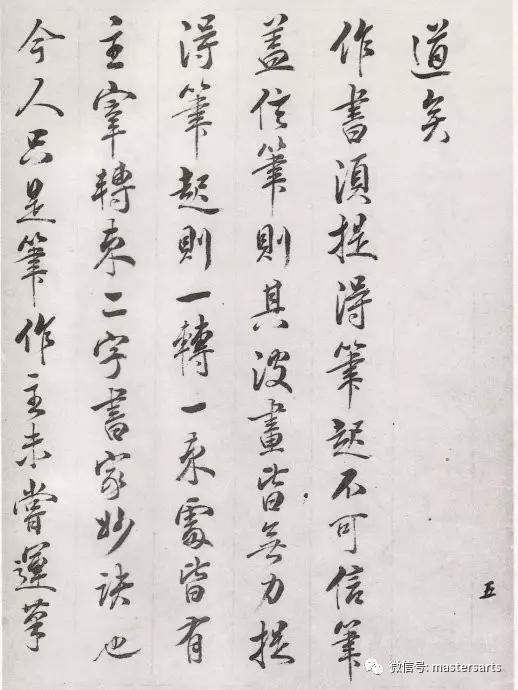 道矣
作書須提得筆起不可信筆
蓋信筆則其波畫皆無力提
得筆起則一轉一束處皆有
主宰轉束二字書家妙訣也
今人只是筆作主未嘗運筆
五
微信号: mastersarts